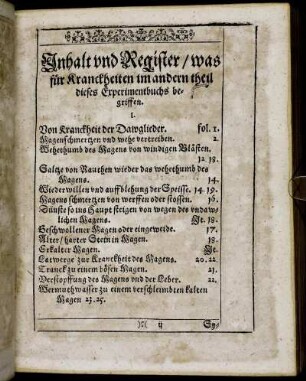 Inhalt vnd Register / was
für Kranckheiten im andern theil
dieses Experimentbuchs be-
griffen.
I.
Von Kranckheit der Dawglieder. fol. 1.
Magenschmertzen vnd wehe vertreiben. 2.
Wehethumb des Magens von windigen Blästen.
12 18.
Saltze von Rauthen wieder das wehethumb des
Magens. 14.
Wiederwillen vnd auffblehung der Speisse. 14. 19.
Magens schmertzen von werffen oder stossen. 16.
Dünste so ins Haupt steigen von wegen des vndaw-
lichen Magens. Jt. 18.
Geschwollener Magen oder eingeweide. 17.
Alter / harter Stein im Magen. 18.
Erkalter Magen. Jt.
Latwerge zur Kranckheit des Magens. 20. 22
Tranck zu einem bösen Magen. 21.
Verstopffung des Magens vnd der Leber. 22.
Wermuthwasser zu einem verschleimbten kalten
Magen 23. 25.
ij Sy-